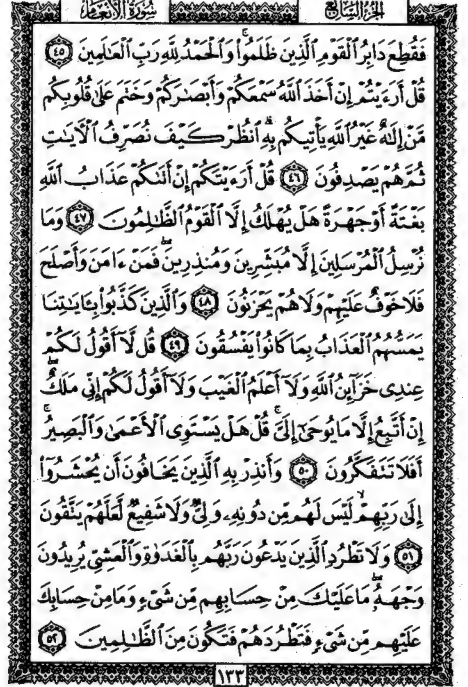 الجزء السابع
سورة الأنعام
فَقُطِعَ دَابِرُ ٱلۡقَوۡمِ ٱلَّذِينَ ظَلَمُواْۚ وَٱلۡحَمۡدُ لِلَّهِ رَبِّ ٱلۡعَٰلَمِينَ ٤٥
قُلۡ أَرَءَيۡتُمۡ إِنۡ أَخَذَ ٱللَّهُ سَمۡعَكُمۡ وَأَبۡصَٰرَكُمۡ وَخَتَمَ عَلَىٰ قُلُوبِكُم
مَّنۡ إِلَٰهٌ غَيۡرُ ٱللَّهِ يَأۡتِيكُم بِهِۗ ٱنظُرۡ كَيۡفَ نُصَرِّفُ ٱلۡأٓيَٰتِ
ثُمَّ هُمۡ يَصۡدِفُونَ ٤٦ قُلۡ أَرَءَيۡتَكُمۡ إِنۡ أَتَىٰكُمۡ عَذَابُ ٱللَّهِ
بَغۡتَةً أَوۡ جَهۡرَةً هَلۡ يُهۡلَكُ إِلَّا ٱلۡقَوۡمُ ٱلظَّٰلِمُونَ ٤٧ وَمَا
نُرۡسِلُ ٱلۡمُرۡسَلِينَ إِلَّا مُبَشِّرِينَ وَمُنذِرِينَۖ فَمَنۡ ءَامَنَ وَأَصۡلَحَ
فَلَا خَوۡفٌ عَلَيۡهِمۡ وَلَا هُمۡ يَحۡزَنُونَ ٤٨ وَٱلَّذِينَ كَذَّبُواْ بِـَٔايَٰتِنَا
يَمَسُّهُمُ ٱلۡعَذَابُ بِمَا كَانُواْ يَفۡسُقُونَ ٤٩ قُل لَّآ أَقُولُ لَكُمۡ
عِندِي خَزَآئِنُ ٱللَّهِ وَلَآ أَعۡلَمُ ٱلۡغَيۡبَ وَلَآ أَقُولُ لَكُمۡ إِنِّي مَلَكٌۖ
إِنۡ أَتَّبِعُ إِلَّا مَا يُوحَىٰٓ إِلَيَّۚ قُلۡ هَلۡ يَسۡتَوِي ٱلۡأَعۡمَىٰ وَٱلۡبَصِيرُۚ
أَفَلَا تَتَفَكَّرُونَ ٥٠ وَأَنذِرۡ بِهِ ٱلَّذِينَ يَخَافُونَ أَن يُحۡشَرُوٓاْ
إِلَىٰ رَبِّهِمۡ لَيۡسَ لَهُم مِّن دُونِهِۦ وَلِيٌّ وَلَا شَفِيعٌ لَّعَلَّهُمۡ يَتَّقُونَ
٥١ وَلَا تَطۡرُدِ ٱلَّذِينَ يَدۡعُونَ رَبَّهُم بِٱلۡغَدَوٰةِ وَٱلۡعَشِيِّ يُرِيدُونَ
وَجۡهَهُۥۖ مَا عَلَيۡكَ مِنۡ حِسَابِهِم مِّن شَيۡءٍ وَمَا مِنۡ حِسَابِكَ
عَلَيۡهِم مِّن شَيۡءٍ فَتَطۡرُدَهُمۡ فَتَكُونَ مِنَ ٱلظَّٰلِمِينَ ٥٢
١٣٣